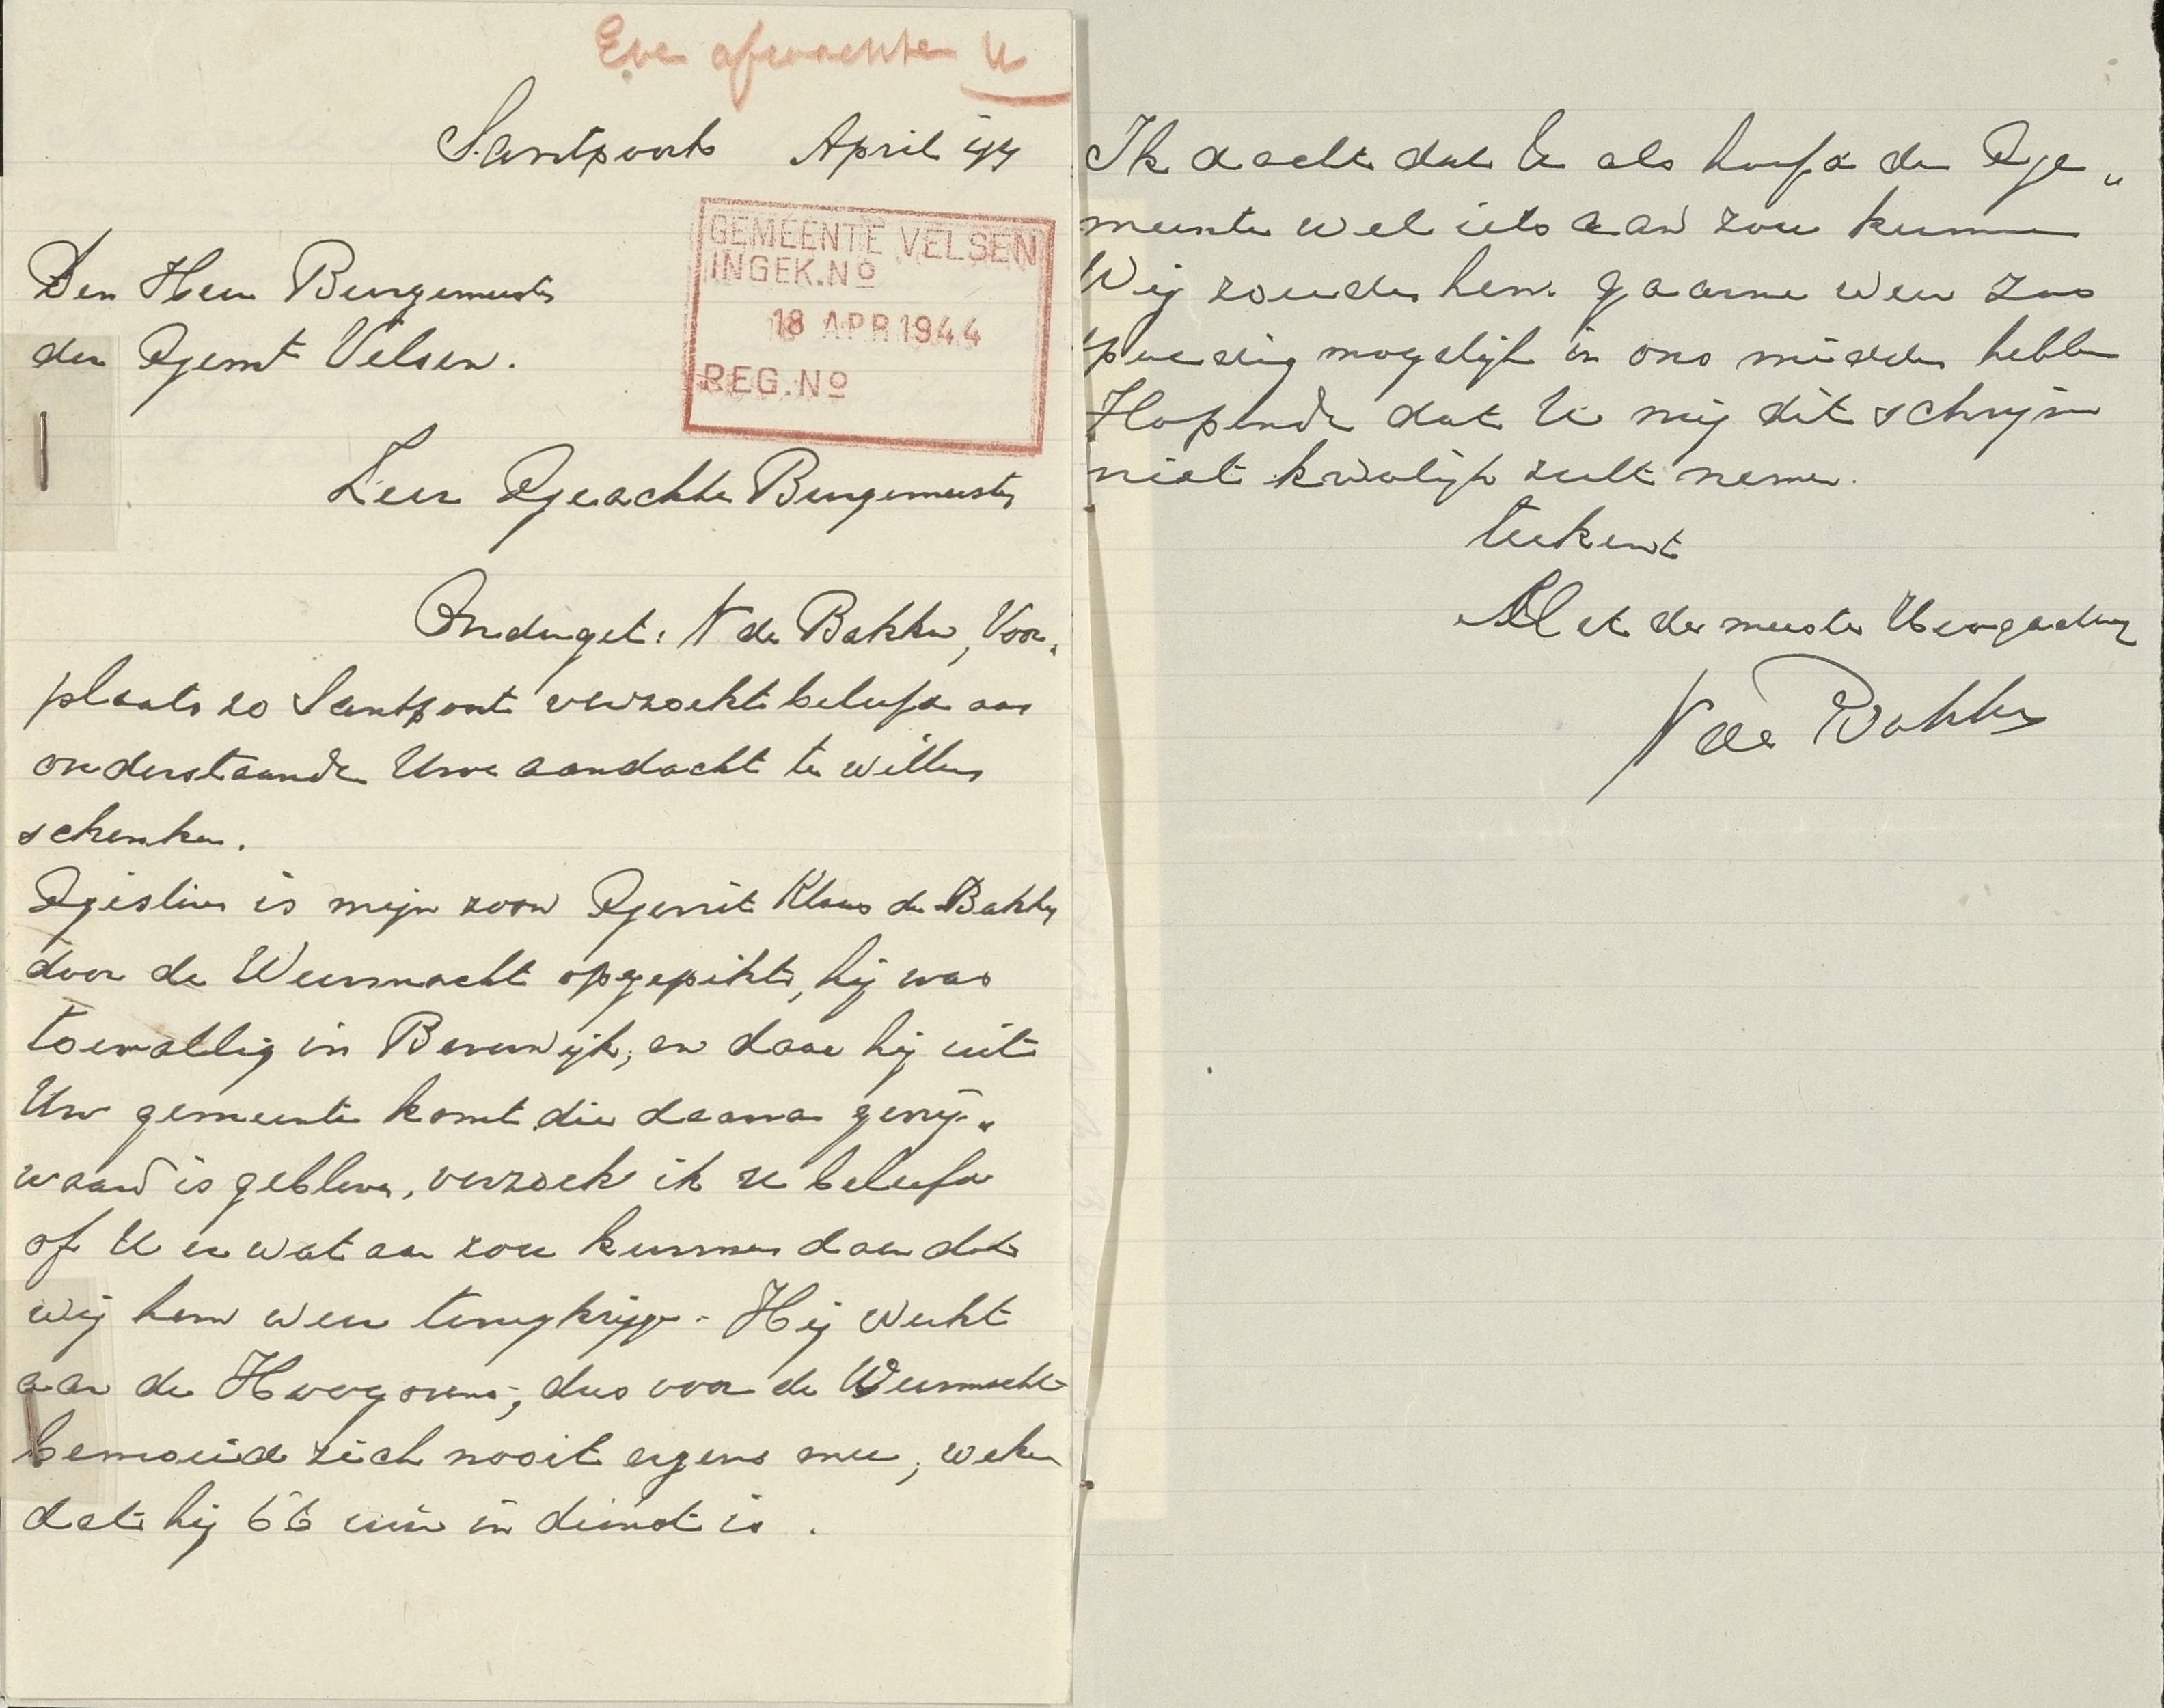 Even afwachten
Santpoort April '44
GEMEENTE VELSEN
INGEK. No
18 APR 1944
REG. No
Den Heer Burgemeester
der Gemt Velsen.
Zeer Geachte Burgemeester
Onderget: N de Bakker, Voor-
plaats 20 Santpoort verzoekt beleefd aan
onderstaande Uwe aandacht te willen
schenken.
Gisteren is mijn zoon Gerrit Klaas de Bakker
door de Weermacht opgepikt, hij was
toevallig in Beverwijk, en daar hij uit
Uw gemeente komt die daarvan gevrij-
waard is gebleven, verzoek ik U beleefd
of U er wat aan zou kunnen doen dat
wij hem weer terugkrijgen. Hij werkt
aan de Hoogovens, dus voor de Weermacht
bemoeid zich nooit ergens mee, zeker
dat hij 66 in dienst is.
Ik dacht dat U als hoofd der Ge-
meente wel iets aan zou kunnen
Wij zouden hem gaarne weer zoo
spoedig mogelijk in ons midden hebben
Hopende dat U mij dit schrijven
niet kwalijk zult nemen.
teekent
Met de meeste Hoogachting
N de Bakker